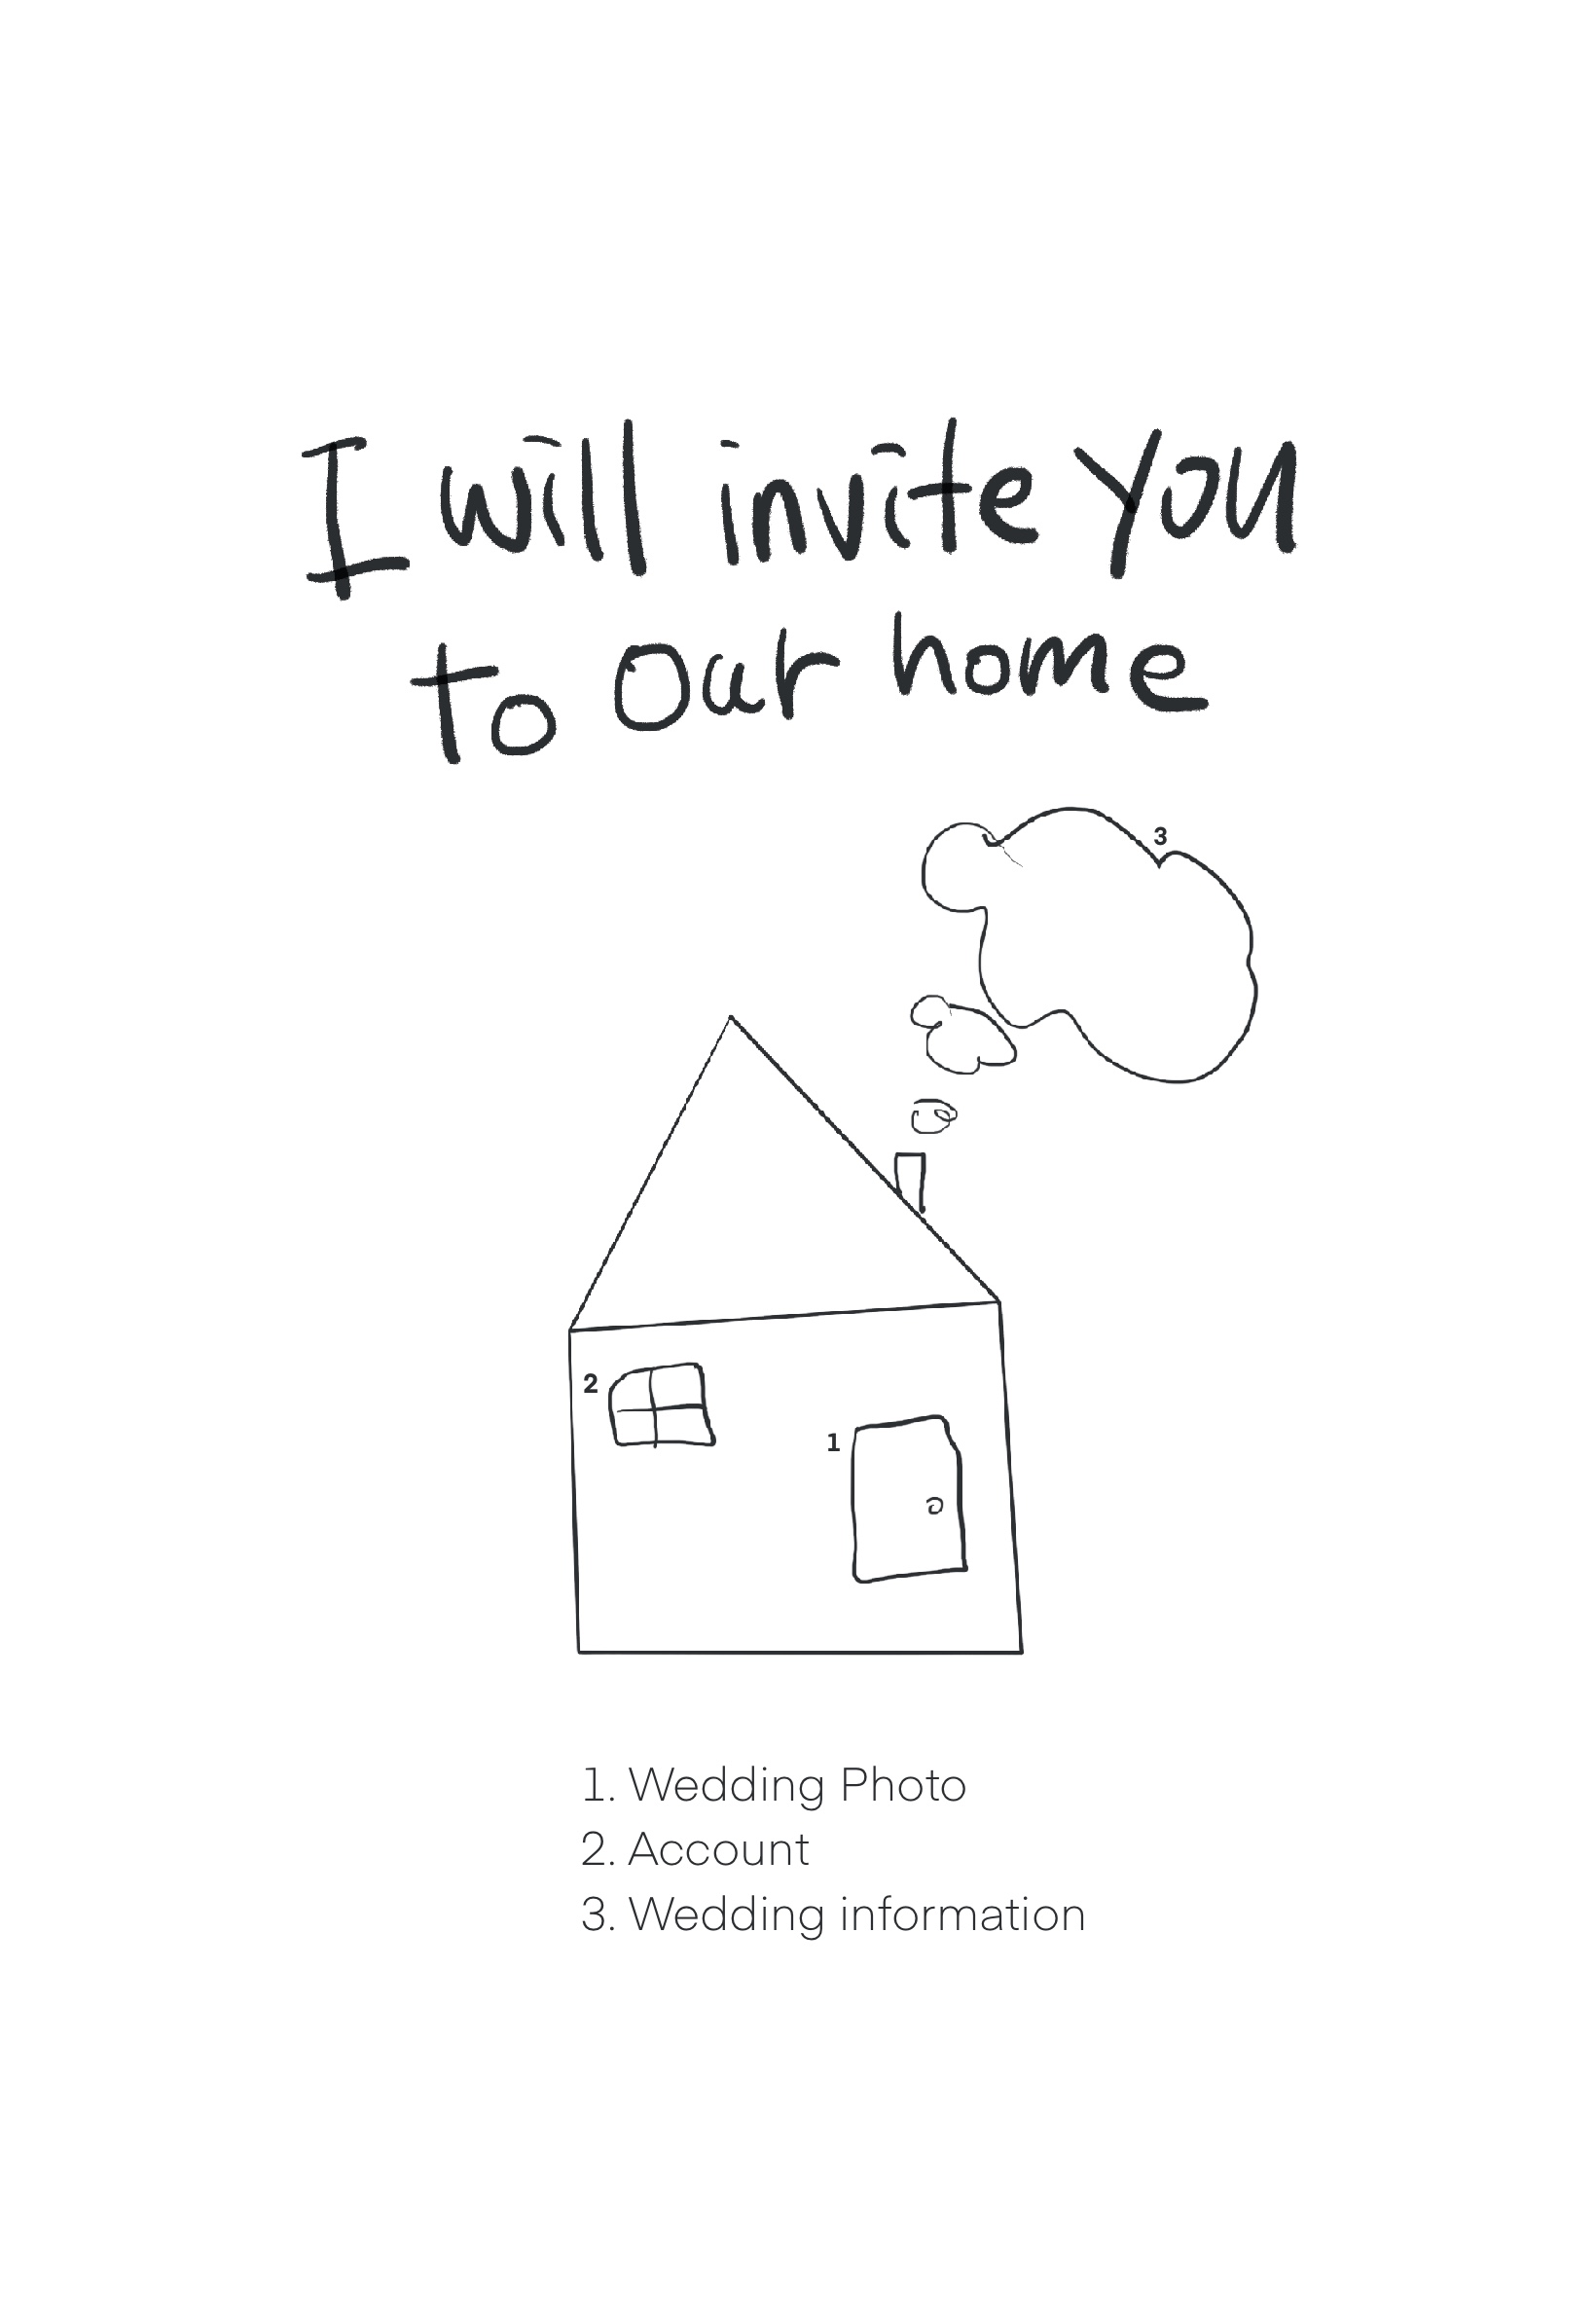 I will invite you
to our home
3
2
1
1. Wedding Photo
2. Account
3. Wedding information